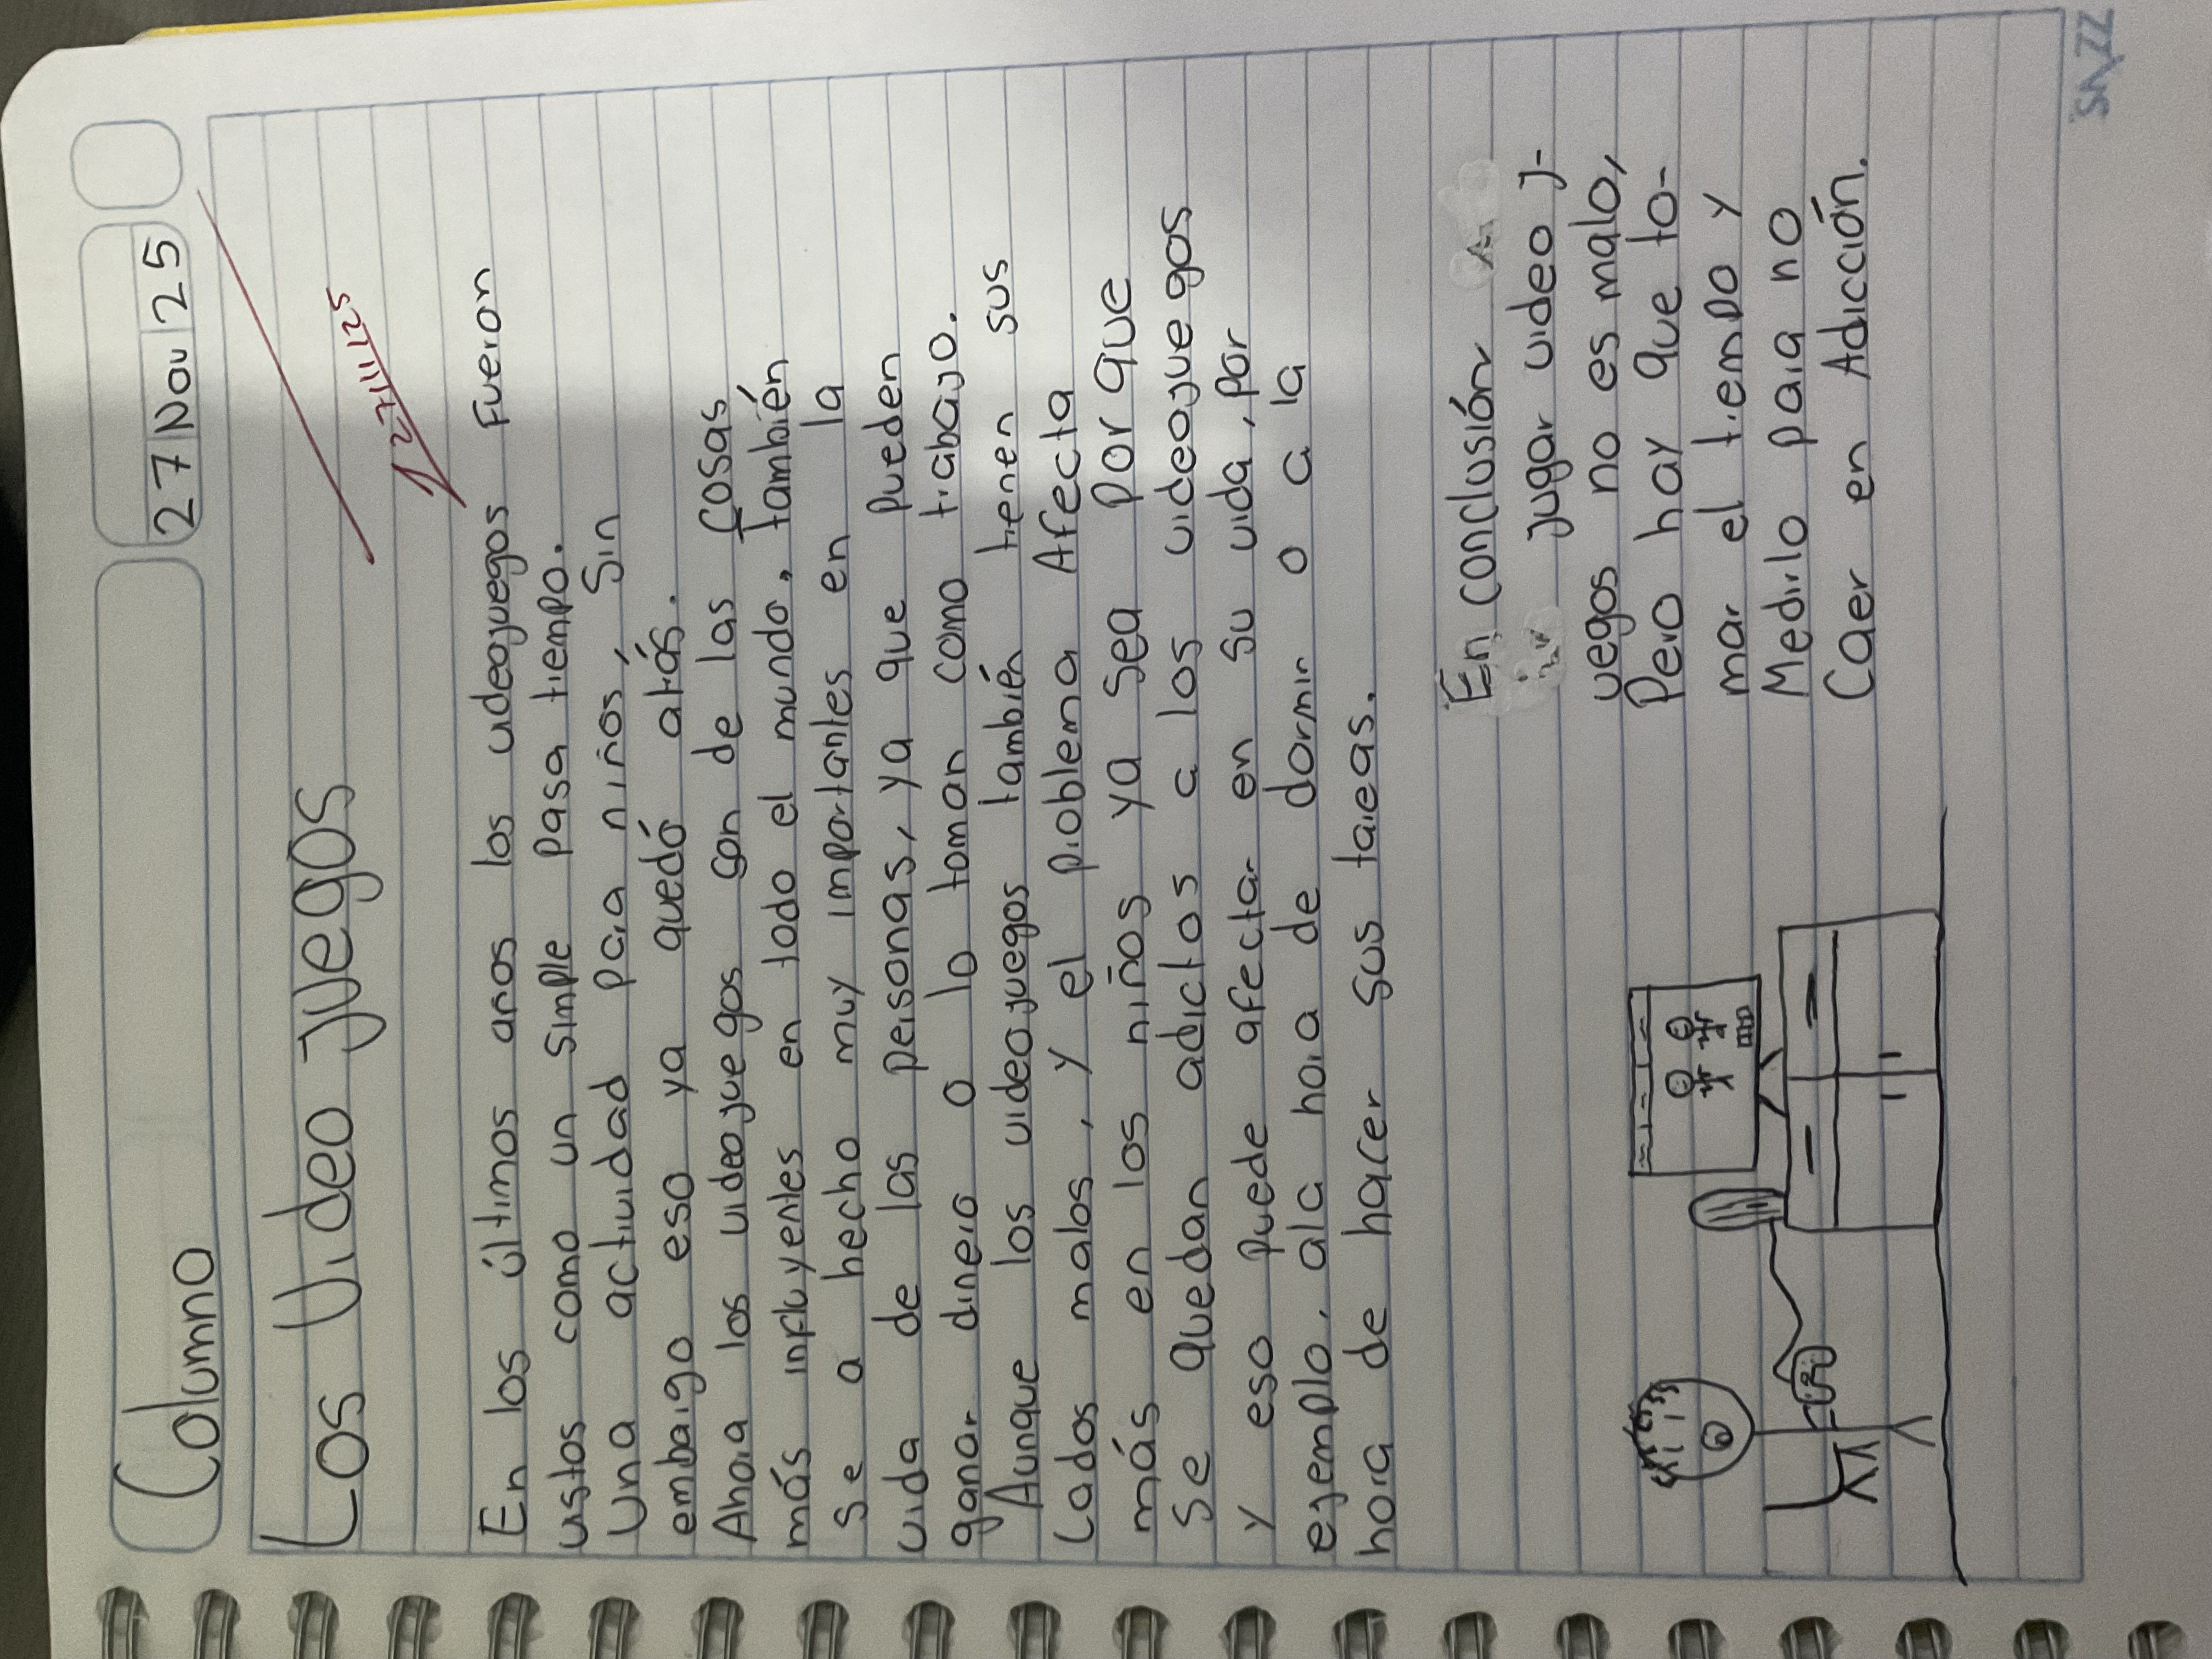 Columno
27 Nov 25
Los Video juegos
27/11/25
En los últimos años los videojuegos Fueron
ustos como un simple pasa tiempo.
Una actividad para niños, Sin
embargo eso ya quedó atás.
Ahora los videojuegos son de las Cosas
más influyentes en todo el mundo. También
se a hecho muy importantes en la
vida de las personas, ya que pueden
ganar dinero o lo toman como trabajo.
Aunque los videojuegos también tienen sus
Lados malos, y el problema Afecta
más en los niños ya sea por que
se quedan adictos a los videojuegos
y eso puede afectar en su vida, por
ejemplo, ala hora de dormir o a la
hora de hacer sus tareas.
En conclusión
jugar video j-
uegos no es malo,
Pero hay que to-
mar el tiempo y
Medirlo para no
Caer en Adicción.
SNZZ